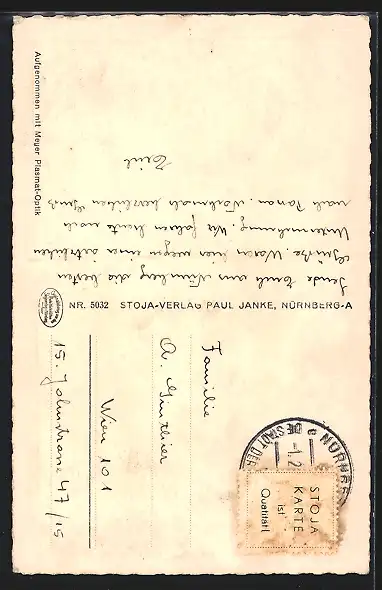 Sende Euch aus Nürnberg die besten
Grüße. Waren hier wegen einer betrieblichen
Unternehmung. Wir fahren heute noch
nach Passau. Nochmals herzlichen Gruß
Aufgenommen mit Meyer Plasmat-Optik
NR. 5032 STOJA-VERLAG PAUL JANKE, NÜRNBERG-A
Familie
A. Günthier
Wien 101
15. Johnstrasse 47/15
NÜRNBE
DE STADT DER
-1.2
STOJA
KARTE
ist
Qualität!